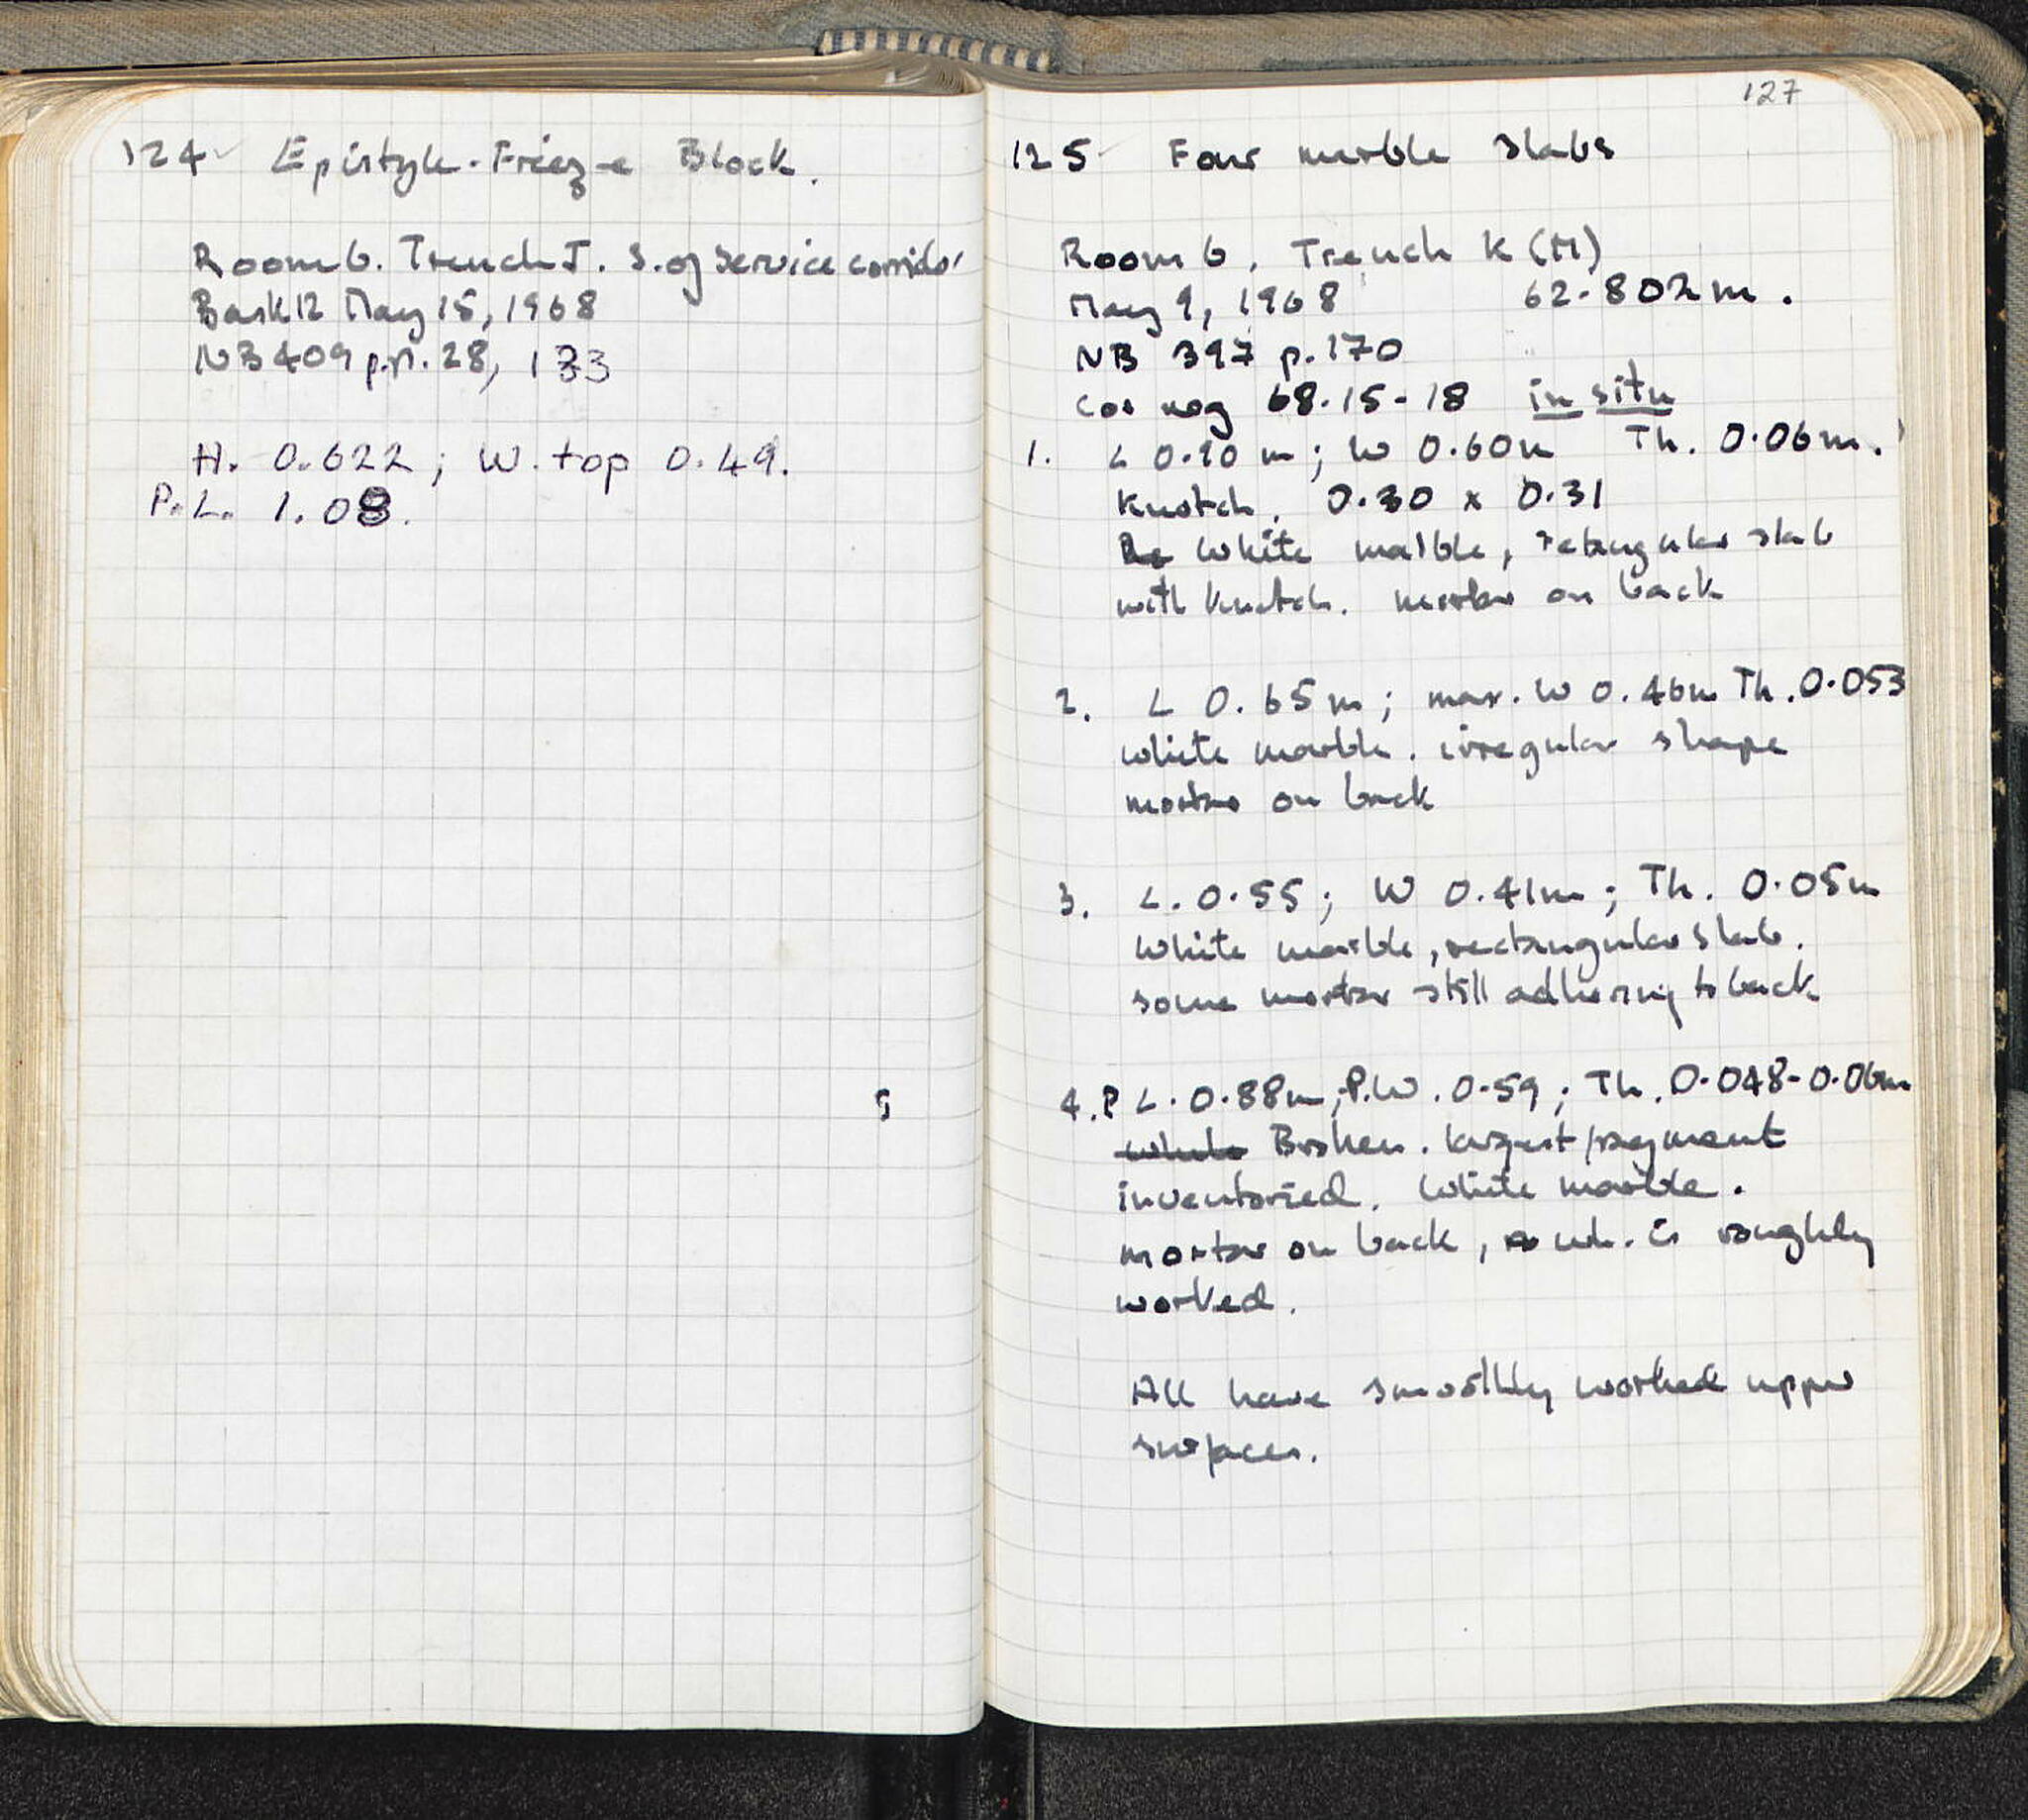 124 Epistyle-Frieze Block.
Room 6. Trench J. S. of service corridor
Bask 12 May 15, 1968
NB 409 p.p. 28, 133
H. 0.622; W. top 0.49.
P.L. 1.08.
127
125 Four marble slabs
Room 6, Trench K (M)
May 9, 1968 62.802 m.
NB 397 p. 170
Cor neg 68-15-18 in situ
1. L 0.90 m; W 0.60m Th. 0.06m.
Knotch. 0.30 x 0.31
Re White marble, retangular slab
with knotch. mortar on back
2. L 0.65 m; max. W 0.46m Th. 0.053
White marble. irregular shape
mortar on back
3. L. 0.55; W 0.41m; Th. 0.05m
White marble, rectangular slab.
some mortar still adhering to back
4. P L. 0.88m; P.W. 0.59; Th. 0.048-0.06m
White Broken. Largest fragment
inventoried. White marble.
mortar on back, wh. is roughly
worked.
All have smoothly worked upper
surfaces.